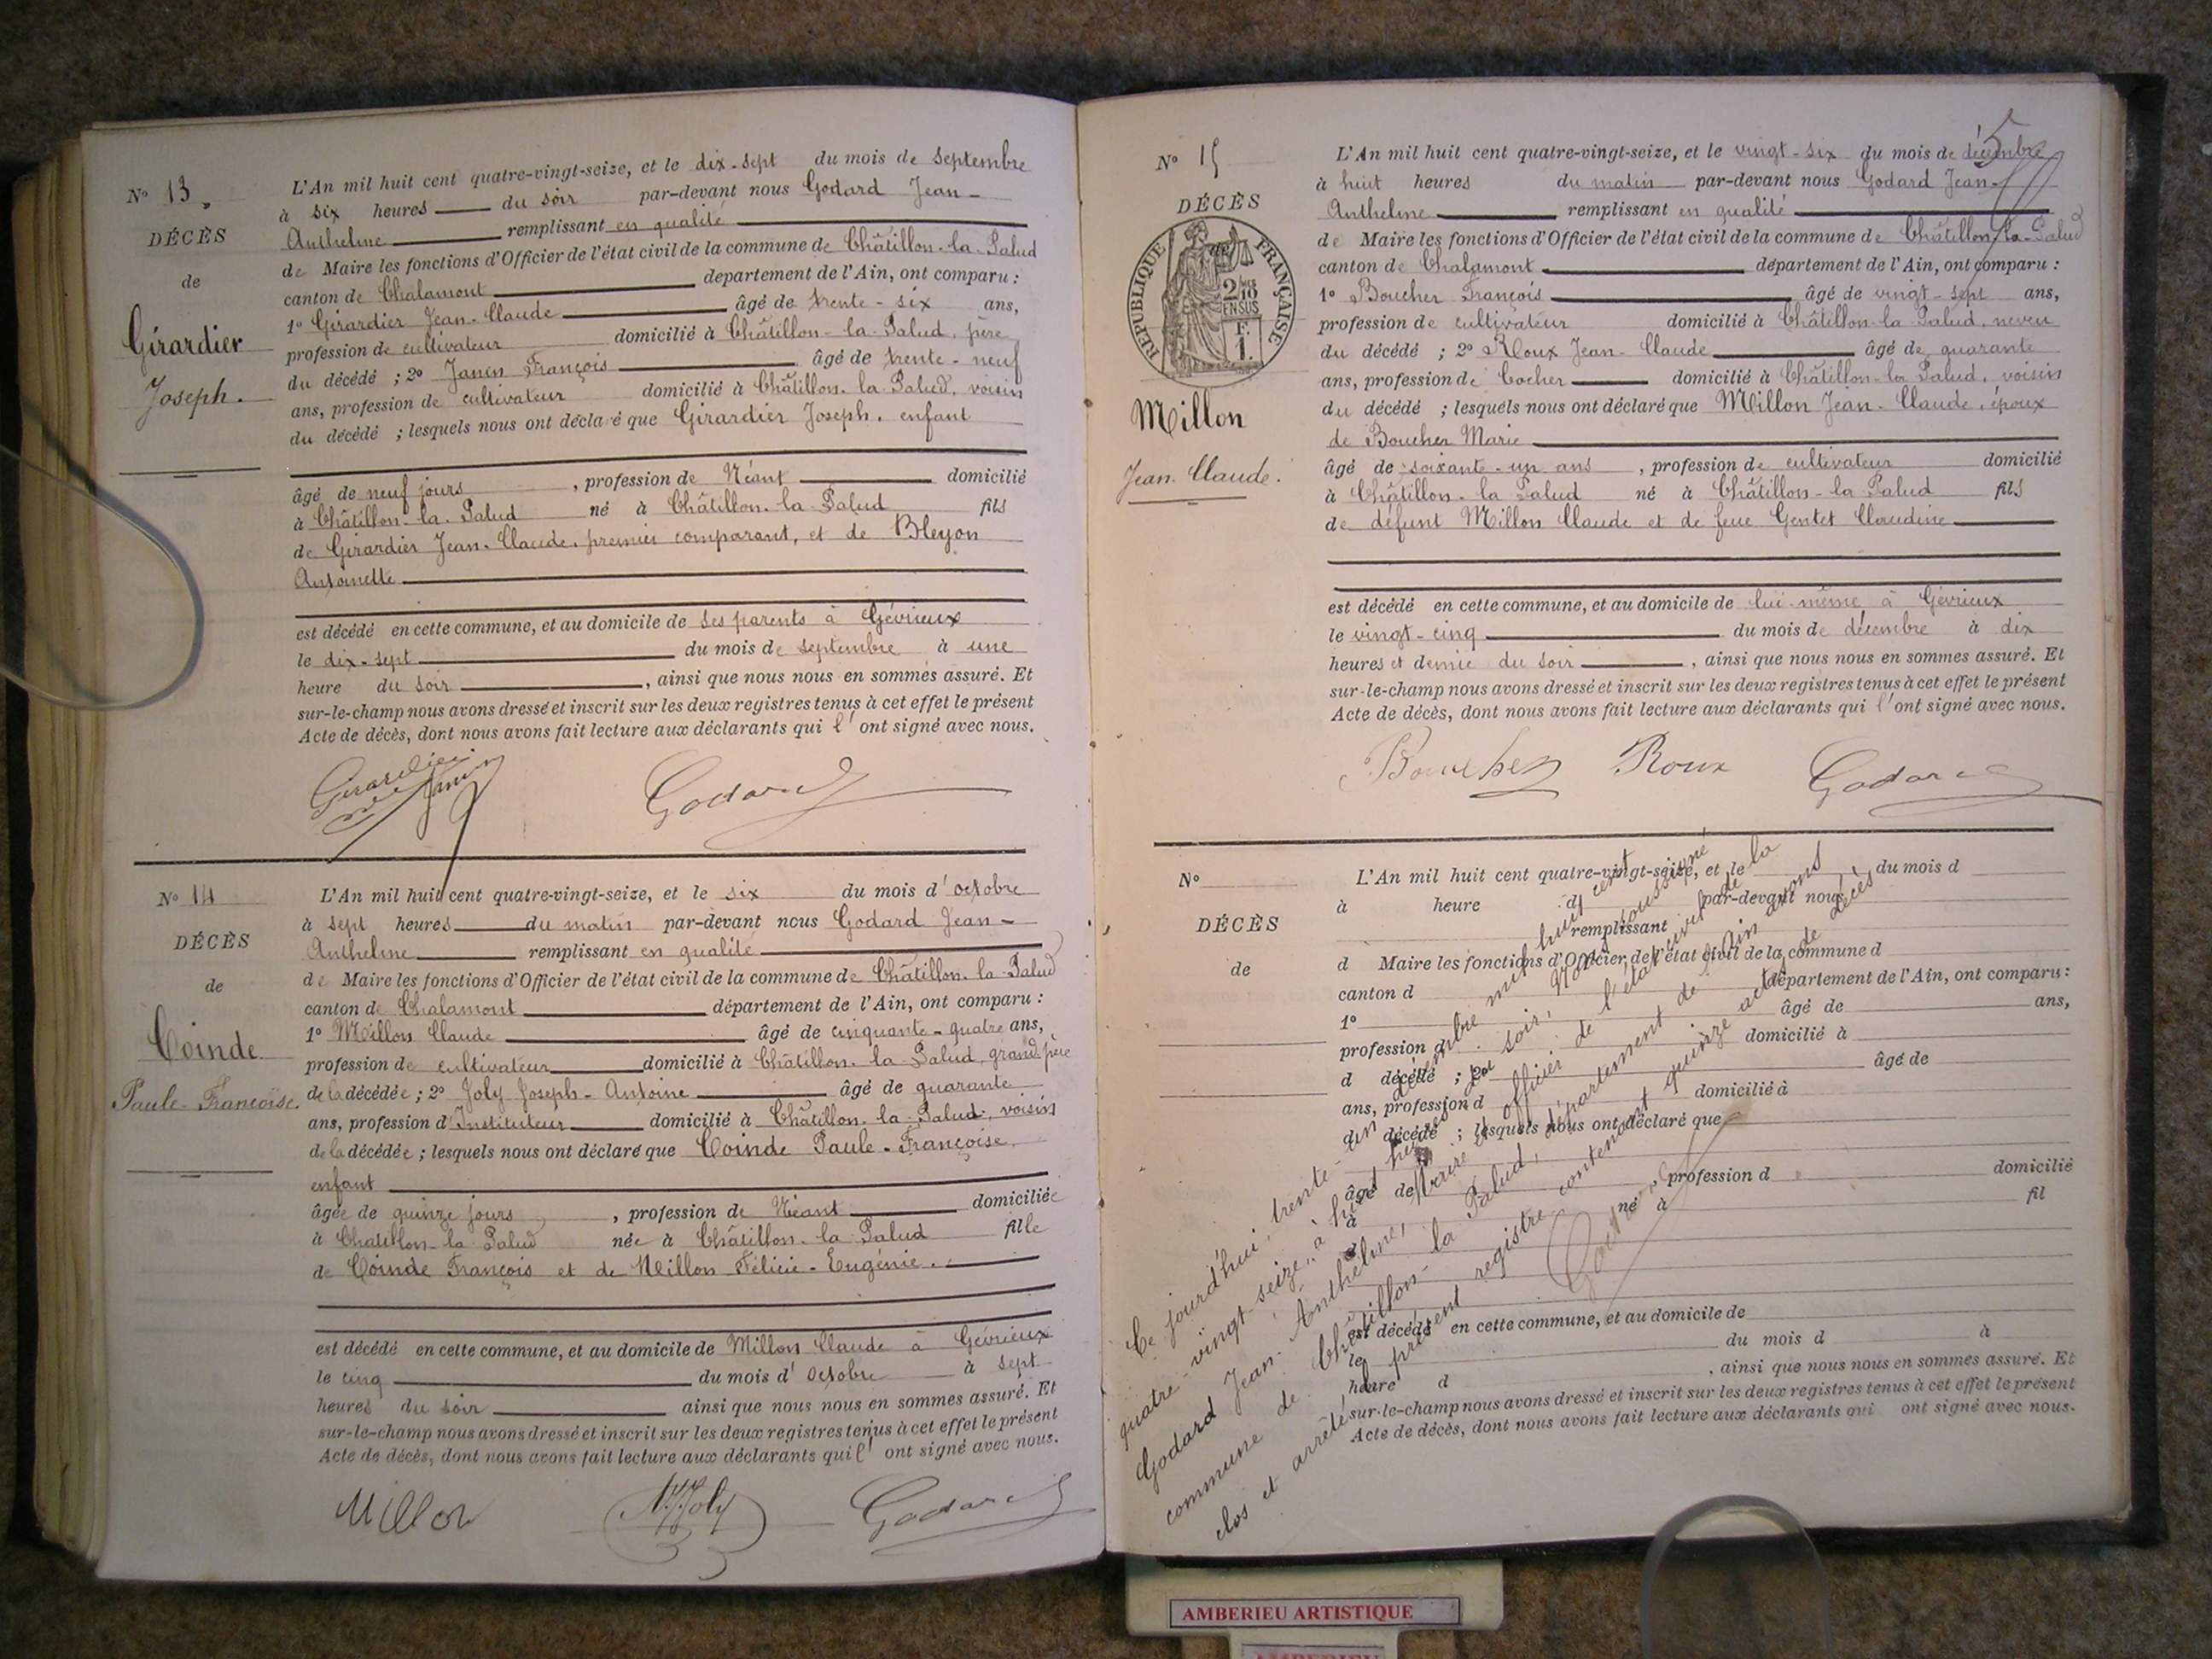 N° 13.
DÉCÈS
de
Girardier
Joseph.
L'An mil huit cent quatre-vingt-seize, et le dix-sept du mois de septembre
à six heures du soir par-devant nous Godard Jean-
Anthelme remplissant en qualité
de Maire les fonctions d'Officier de l'état civil de la commune de Châtillon-la-Palud
canton de Chalamont département de l'Ain, ont comparu :
1° Girardier Jean-Claude âgé de trente-six ans,
profession de cultivateur domicilié à Châtillon-la-Palud, père
du décédé ; 2° Janin François âgé de trente-neuf
ans, profession de cultivateur domicilié à Châtillon-la-Palud, voisin
du décédé ; lesquels nous ont déclaré que Girardier Joseph, enfant
âgé de neuf jours , profession de Néant domicilié
à Châtillon-la-Palud né à Châtillon-la-Palud fils
de Girardier Jean-Claude, premier comparant, et de Bleyon
Antoinette
est décédé en cette commune, et au domicile de ses parents à Gévrieux
le dix-sept du mois de septembre à une
heure du soir , ainsi que nous nous en sommes assuré. Et
sur-le-champ nous avons dressé et inscrit sur les deux registres tenus à cet effet le présent
Acte de décès, dont nous avons fait lecture aux déclarants qui l'ont signé avec nous.
Girardier Janin Godard
N° 14
DÉCÈS
de
Coinde
Paule-Françoise.
L'An mil huit cent quatre-vingt-seize, et le six du mois d'octobre
à sept heures du matin par-devant nous Godard Jean-
Anthelme remplissant en qualité
de Maire les fonctions d'Officier de l'état civil de la commune de Châtillon-la-Palud
canton de Chalamont département de l'Ain, ont comparu :
1° Millon Claude âgé de cinquante-quatre ans,
profession de cultivateur domicilié à Châtillon-la-Palud, grand père
de la décédée ; 2° Joly Joseph-Antoine âgé de quarante
ans, profession d'Instituteur domicilié à Châtillon-la-Palud, voisin
de la décédée ; lesquels nous ont déclaré que Coinde Paule-Françoise,
enfant
âgée de quinze jours , profession de Néant domiciliée
à Chatillon-la Palud née à Châtillon-la Palud fille
de Coinde François et de Millon Félicie-Eugénie.
est décédé en cette commune, et au domicile de Millon Claude à Gévrieux
le cinq du mois d'Octobre à sept
heures du soir ainsi que nous nous en sommes assuré. Et
sur-le-champ nous avons dressé et inscrit sur les deux registres tenus à cet effet le présent
Acte de décès, dont nous avons fait lecture aux déclarants qui l'ont signé avec nous.
Millon Joly Godard
5
N° 15
DÉCÈS
de
RÉPUBLIQUE FRANÇAISE
2/10 EN SUS
F.
1.
Millon
Jean-Claude.
L'An mil huit cent quatre-vingt-seize, et le vingt-six du mois de décembre
à huit heures du matin par-devant nous Godard Jean-
Anthelme remplissant en qualité
de Maire les fonctions d'Officier de l'état civil de la commune de Châtillon-la-Palud
canton de Chalamont département de l'Ain, ont comparu :
1° Boucher François âgé de vingt-sept ans,
profession de cultivateur domicilié à Châtillon-la Palud, neveu
du décédé ; 2° Roux Jean-Claude âgé de quarante
ans, profession de Cocher domicilié à Châtillon-la Palud, voisin
du décédé ; lesquels nous ont déclaré que Millon Jean-Claude, époux
de Boucher Marie
âgé de soixante-un ans , profession de cultivateur domicilié
à Châtillon-la Palud né à Châtillon-la Palud fils
de défunt Millon Claude et de feue Gentet Claudine
est décédé en cette commune, et au domicile de lui-même à Gévrieux
le vingt-cinq du mois de décembre à dix
heures et demie du soir , ainsi que nous nous en sommes assuré. Et
sur-le-champ nous avons dressé et inscrit sur les deux registres tenus à cet effet le présent
Acte de décès, dont nous avons fait lecture aux déclarants qui l'ont signé avec nous.
Boucher Roux Godard
N°
DÉCÈS
de
L'An mil huit cent quatre-vingt-seize, et le du mois d
à heure d par-devant nous
remplissant
d Maire les fonctions d'Officier de l'état civil de la commune d
canton d département de l'Ain, ont comparu :
1° âgé de ans,
profession d domicilié à
d décédé ; 2° âgé de
ans, profession d domicilié à
d décédé ; lesquels nous ont déclaré que
âgé de , profession d domicilié
à né à fil
est décédé en cette commune, et au domicile de
le du mois d à
heure d , ainsi que nous nous en sommes assuré. Et
sur-le-champ nous avons dressé et inscrit sur les deux registres tenus à cet effet le présent
Acte de décès, dont nous avons fait lecture aux déclarants qui ont signé avec nous.
Ce jourd'hui, trente-un décembre mil huit cent
quatre-vingt-seize, à huit heures du soir, Nous soussigné
Godard Jean-Anthelme, Maire et officier de l'état civil de la
commune de Châtillon-la Palud, département de l'Ain avons
clos et arrêté le présent registre contenant quinze actes de décès
Godard
AMBERIEU ARTISTIQUE
AMBERIEU